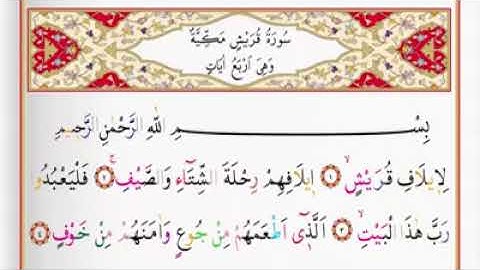 سُورَةُ قُرَيْشٍ مَكِّيَّةٌ
وَهِيَ اَرْبَعُ اٰيَاتٍ
بِسْمِ اللّٰهِ الرَّحْمٰنِ الرَّحِيمِ
لِاِيلَافِ قُرَيْشٍۙ ﴿١﴾ اِيلَافِهِمْ رِحْلَةَ الشِّتَٓاءِ وَالصَّيْفِۚ ﴿٢﴾ فَلْيَعْبُدُوا
رَبَّ هٰذَا الْبَيْتِۙ ﴿٣﴾ اَلَّذ۪ٓي اَطْعَمَهُمْ مِنْ جُوعٍ وَاٰمَنَهُمْ مِنْ خَوْفٍ ﴿٤﴾